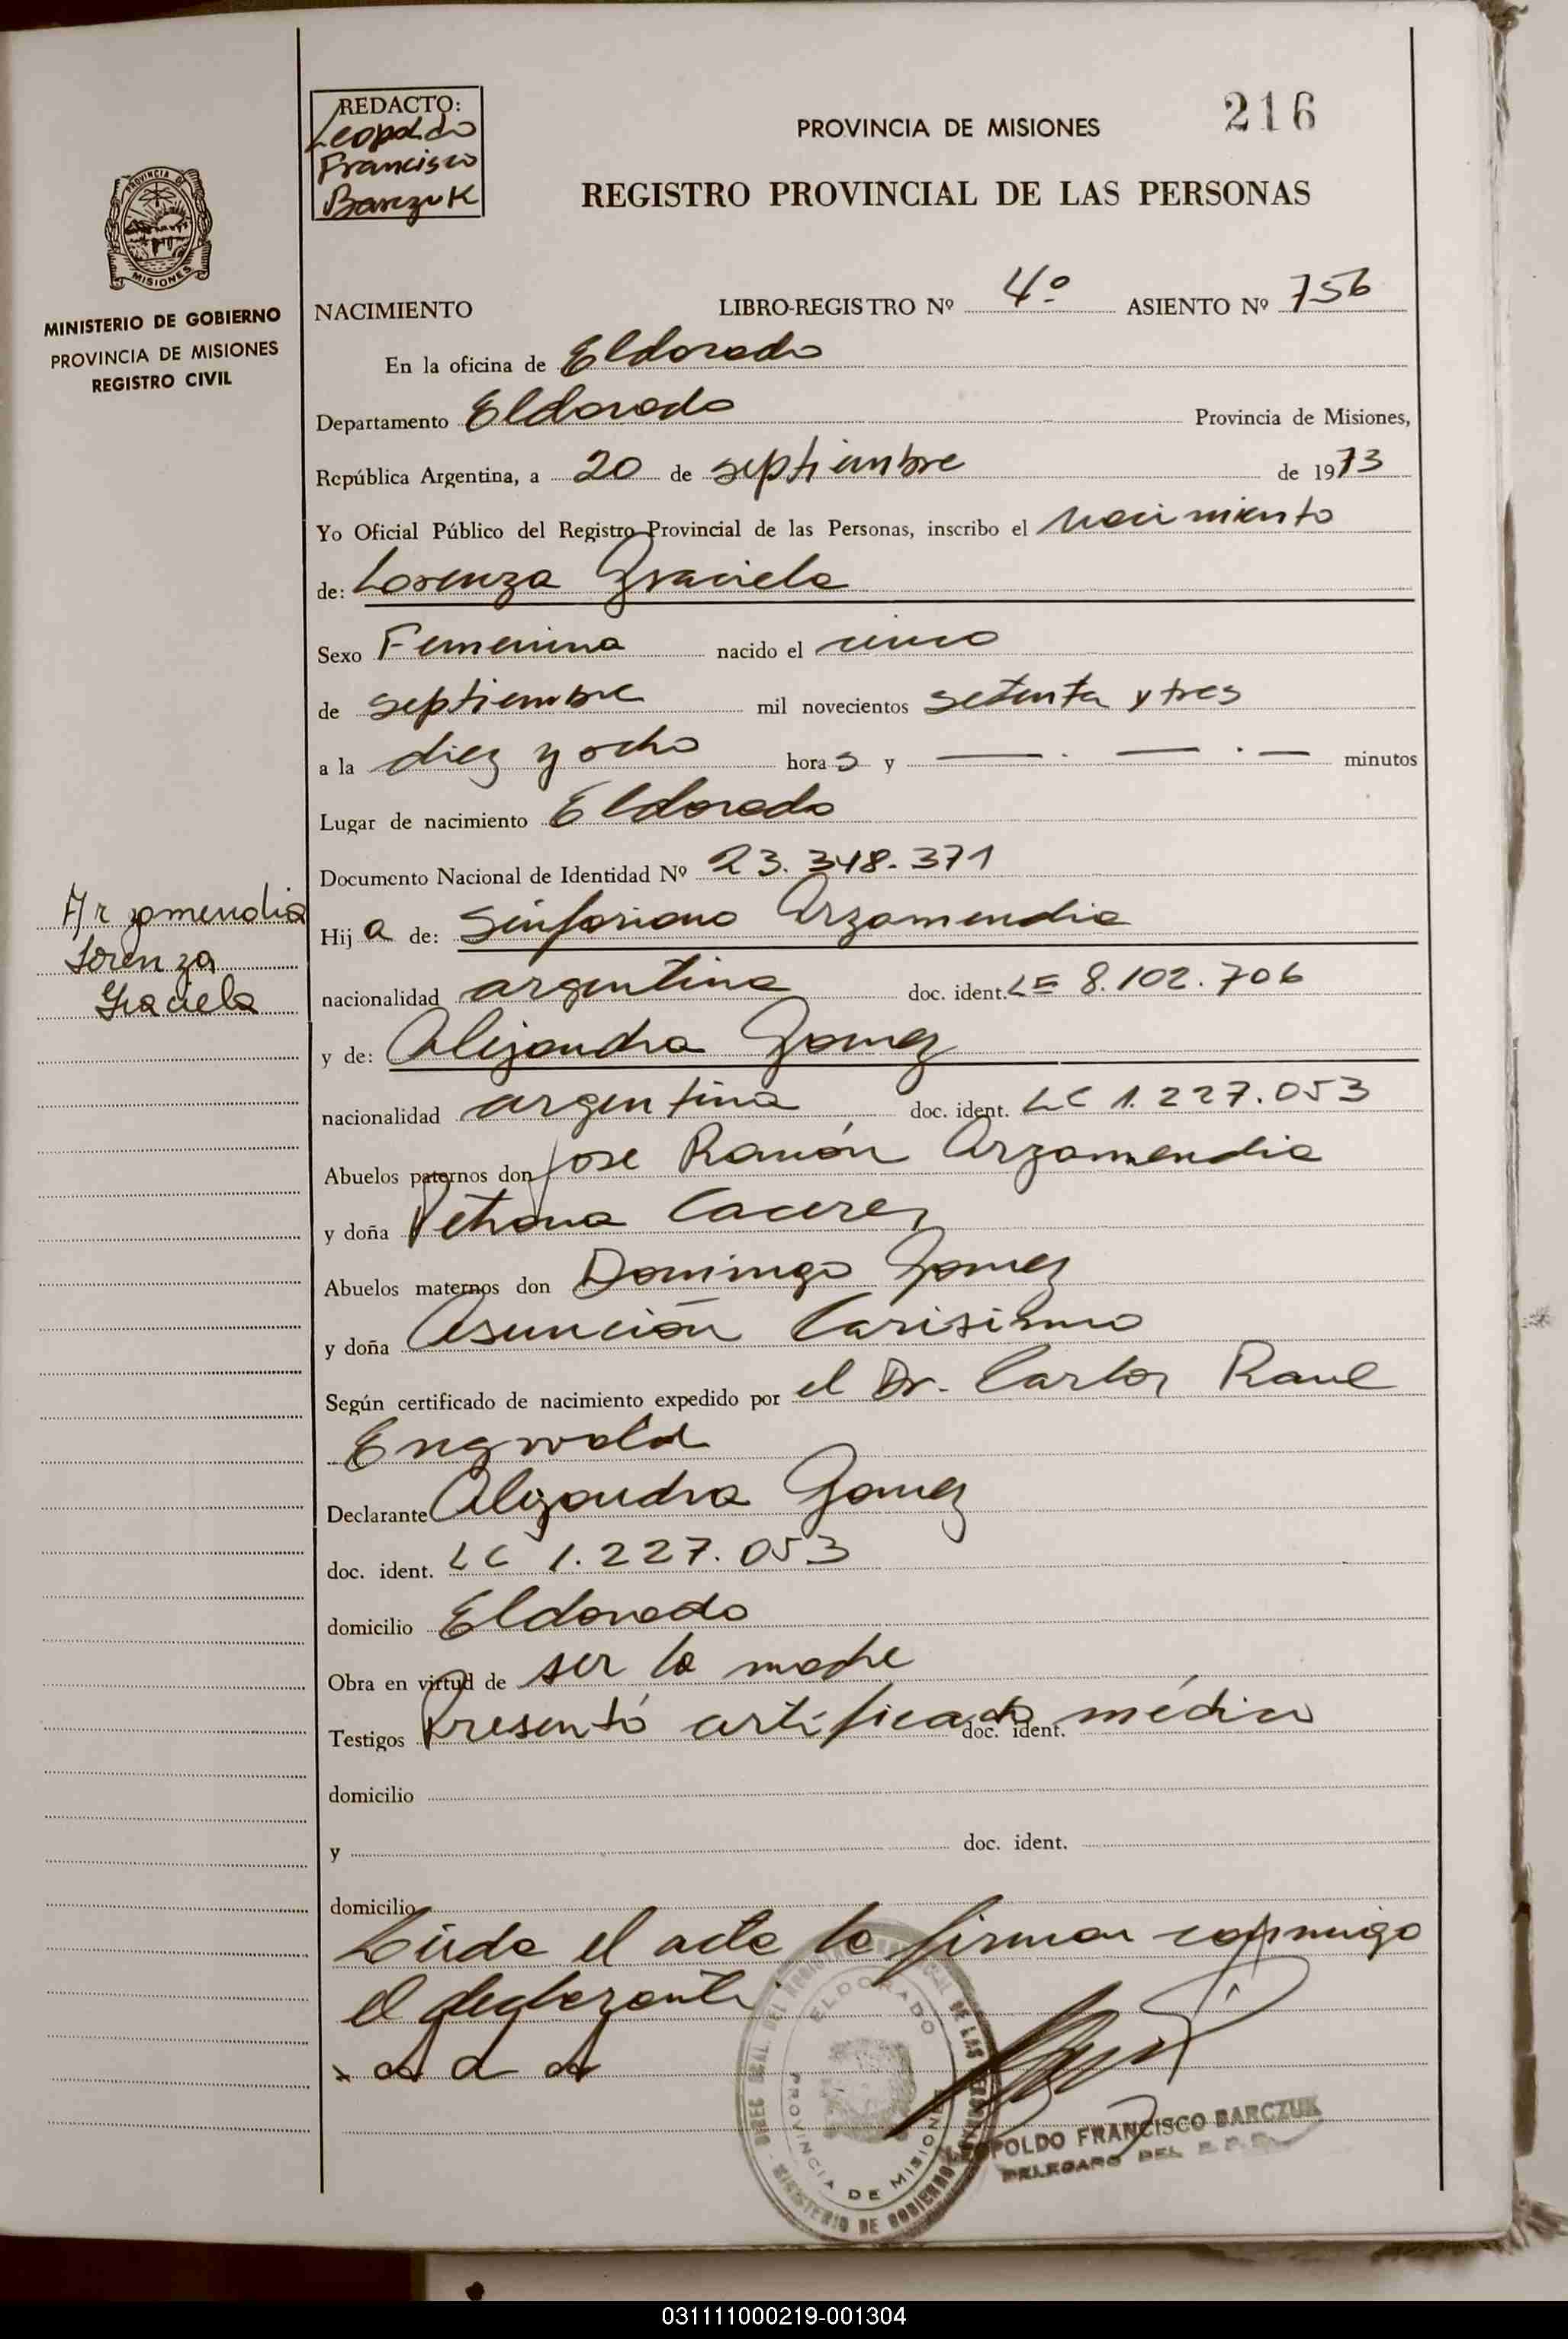 216
REDACTO:
Leopoldo
Francisco
Barczuk
PROVINCIA DE MISIONES
REGISTRO PROVINCIAL DE LAS PERSONAS
PROVINCIA DE
MISIONES
MINISTERIO DE GOBIERNO
PROVINCIA DE MISIONES
REGISTRO CIVIL
NACIMIENTO LIBRO-REGISTRO Nº 4º ASIENTO Nº 756
En la oficina de Eldorado
Departamento Eldorado Provincia de Misiones,
República Argentina, a 20 de septiembre de 1973
Yo Oficial Público del Registro Provincial de las Personas, inscribo el nacimiento
de: Lorenza Graciela
Sexo Femenina nacido el cinco
de septiembre mil novecientos setenta y tres
a la diez y ocho horas y — . — . — minutos
Lugar de nacimiento Eldorado
Documento Nacional de Identidad Nº 23.348.371
Arzamendia
Lorenza
Graciela
Hija de: Sinforiano Arzamendia
nacionalidad argentina doc. ident. LE 8.102.706
y de: Alejandra Gomez
nacionalidad argentina doc. ident. LC 1.227.053
Abuelos paternos don Jose Ramón Arzamendia
y doña Petrona Caceres
Abuelos maternos don Domingo Gomez
y doña Asunción Carisimo
Según certificado de nacimiento expedido por el Dr. Carlos Raul
Engwald
Declarante Alejandra Gomez
doc. ident. LC 1.227.053
domicilio Eldorado
Obra en virtud de ser la madre
Testigos Presentó certificado médico doc. ident.
domicilio
y doc. ident.
domicilio
Leída el acta la firman conmigo
el declarante
DIREC. GRAL. DEL REGISTRO PROVINCIAL DE LAS PERSONAS
ELDORADO
PROVINCIA DE MISIONES
MINISTERIO DE GOBIERNO
LEOPOLDO FRANCISCO BARCZUK
DELEGADO DEL
031111000219-001304